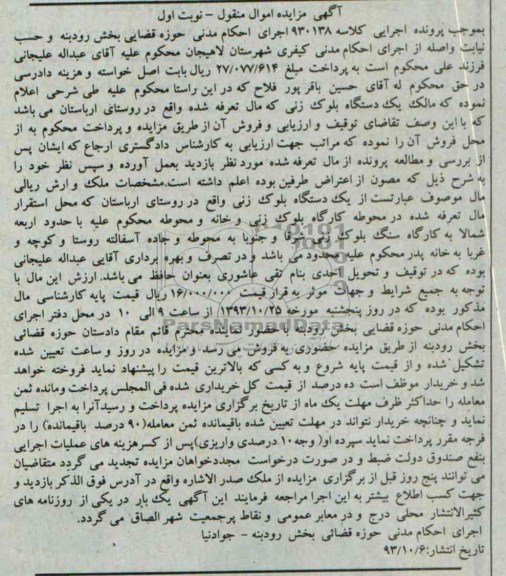 آگهی مزایده اموال منقول - نوبت اول
بموجب پرونده اجرایی کلاسه ۹۳۰۱۳۸ اجرای احکام مدنی حوزه قضایی بخش رودبنه و حسب
نیابت واصله از اجرای احکام مدنی کیفری شهرستان لاهیجان محکوم علیه آقای عبداله علیجانی
فرزند علی محکوم است به پرداخت مبلغ ۲۷/۰۷۷/۶۱۴ ریال بابت اصل خواسته و هزینه دادرسی
در حق محکوم له آقای حسین باقر پور فلاح که در این راستا محکوم علیه طی شرحی اعلام
نموده که مالک یک دستگاه بلوک زنی که مال تعرفه شده واقع در روستای ارباستان می باشد
که با این وصف تقاضای توقیف و ارزیابی و فروش آن از طریق مزایده و پرداخت محکوم به از
محل فروش آن را نموده که مراتب جهت ارزیابی به کارشناس دادگستری ارجاع که ایشان پس
از بررسی و مطالعه پرونده از مال تعرفه شده مورد نظر بازدید بعمل آورده و سپس نظر خود را
به شرح ذیل که مصون از اعتراض طرفین بوده اعلم داشته است.مشخصات ملک و ارش ریالی
مال موصوف عبارتست از یک دستگاه بلوک زنی واقع در روستای ارباستان که محل استقرار
مال تعرفه شده در محوطه کارگاه بلوک زنی و خانه و محوطه محکوم علیه با حدود اربعه
شمالا به کارگاه سنگ بلوک زنی شرقا و جنوبا به محوطه و جاده آسفالته روستا و کوچه و
غربا به خانه پدر محکوم علیه محدود می باشد و در تصرف و بهره برداری آقایی عبداله علیجانی
بوده که در توقیف و تحویل احدی بنام تقی عاشوری بعنوان حافظ می باشد. ارزش این مال با
توجه به جمیع شرایط و جهات موثر به قرار قیمت ۱۶/۰۰۰/۰۰۰ ریال قیمت پایه کارشناسی مال
مذکور بوده که در روز پنجشنبه مورخه ۱۳۹۳/۱۰/۲۵ از ساعت ۹ الی ۱۰ در محل دفتر اجرای
احکام مدنی حوزه قضایی بخش رودبنه با حضور نماینده محترم قائم مقام دادستان حوزه قضائی
بخش رودبنه از طریق مزایده حضوری به فروش می رسد و مزایده در روز و ساعت تعیین شده
تشکیل شده و از قیمت پایه شروع و به کسی که بالاترین قیمت را پیشنهاد نماید فروخته خواهد
شد و خریدار موظف است ده درصد از قیمت کل خریداری شده فی المجلس پرداخت ومانده ثمن
معامله را حداکثر ظرف مهلت یک ماه از تاریخ برگزاری مزایده پرداخت و رسیدآنرا به اجرا تسلیم
نماید و چنانچه خریدار نتواند در مهلت تعیین شده باقیمانده ثمن معامله(۹۰ درصد باقیمانده) را در
فرجه مقرر پرداخت نماید سپرده او( وجه ۱۰ درصدی واریزی)پس از کسرهزینه های عملیات اجرایی
بنفع صندوق دولت ضبط و در صورت درخواست مجددخواهان مزایده تجدید می گردد متقاضیان
می توانند پنج روز قبل از برگزاری مزایده از ملک صدر الاشاره واقع در آدرس فوق الذکر بازدید و
جهت کسب اطلاع بیشتر به این اجرا مراجعه فرمایند این آگهی یک بار در یکی از روزنامه های
کثیرالانتشار محلی درج و در معابر عمومی و نقاط پرجمعیت شهر الصاق می گردد.
اجرای احکام مدنی حوزه قضائی بخش رودبنه - جوادنیا
تاریخ انتشار:۹۳/۱۰/۶